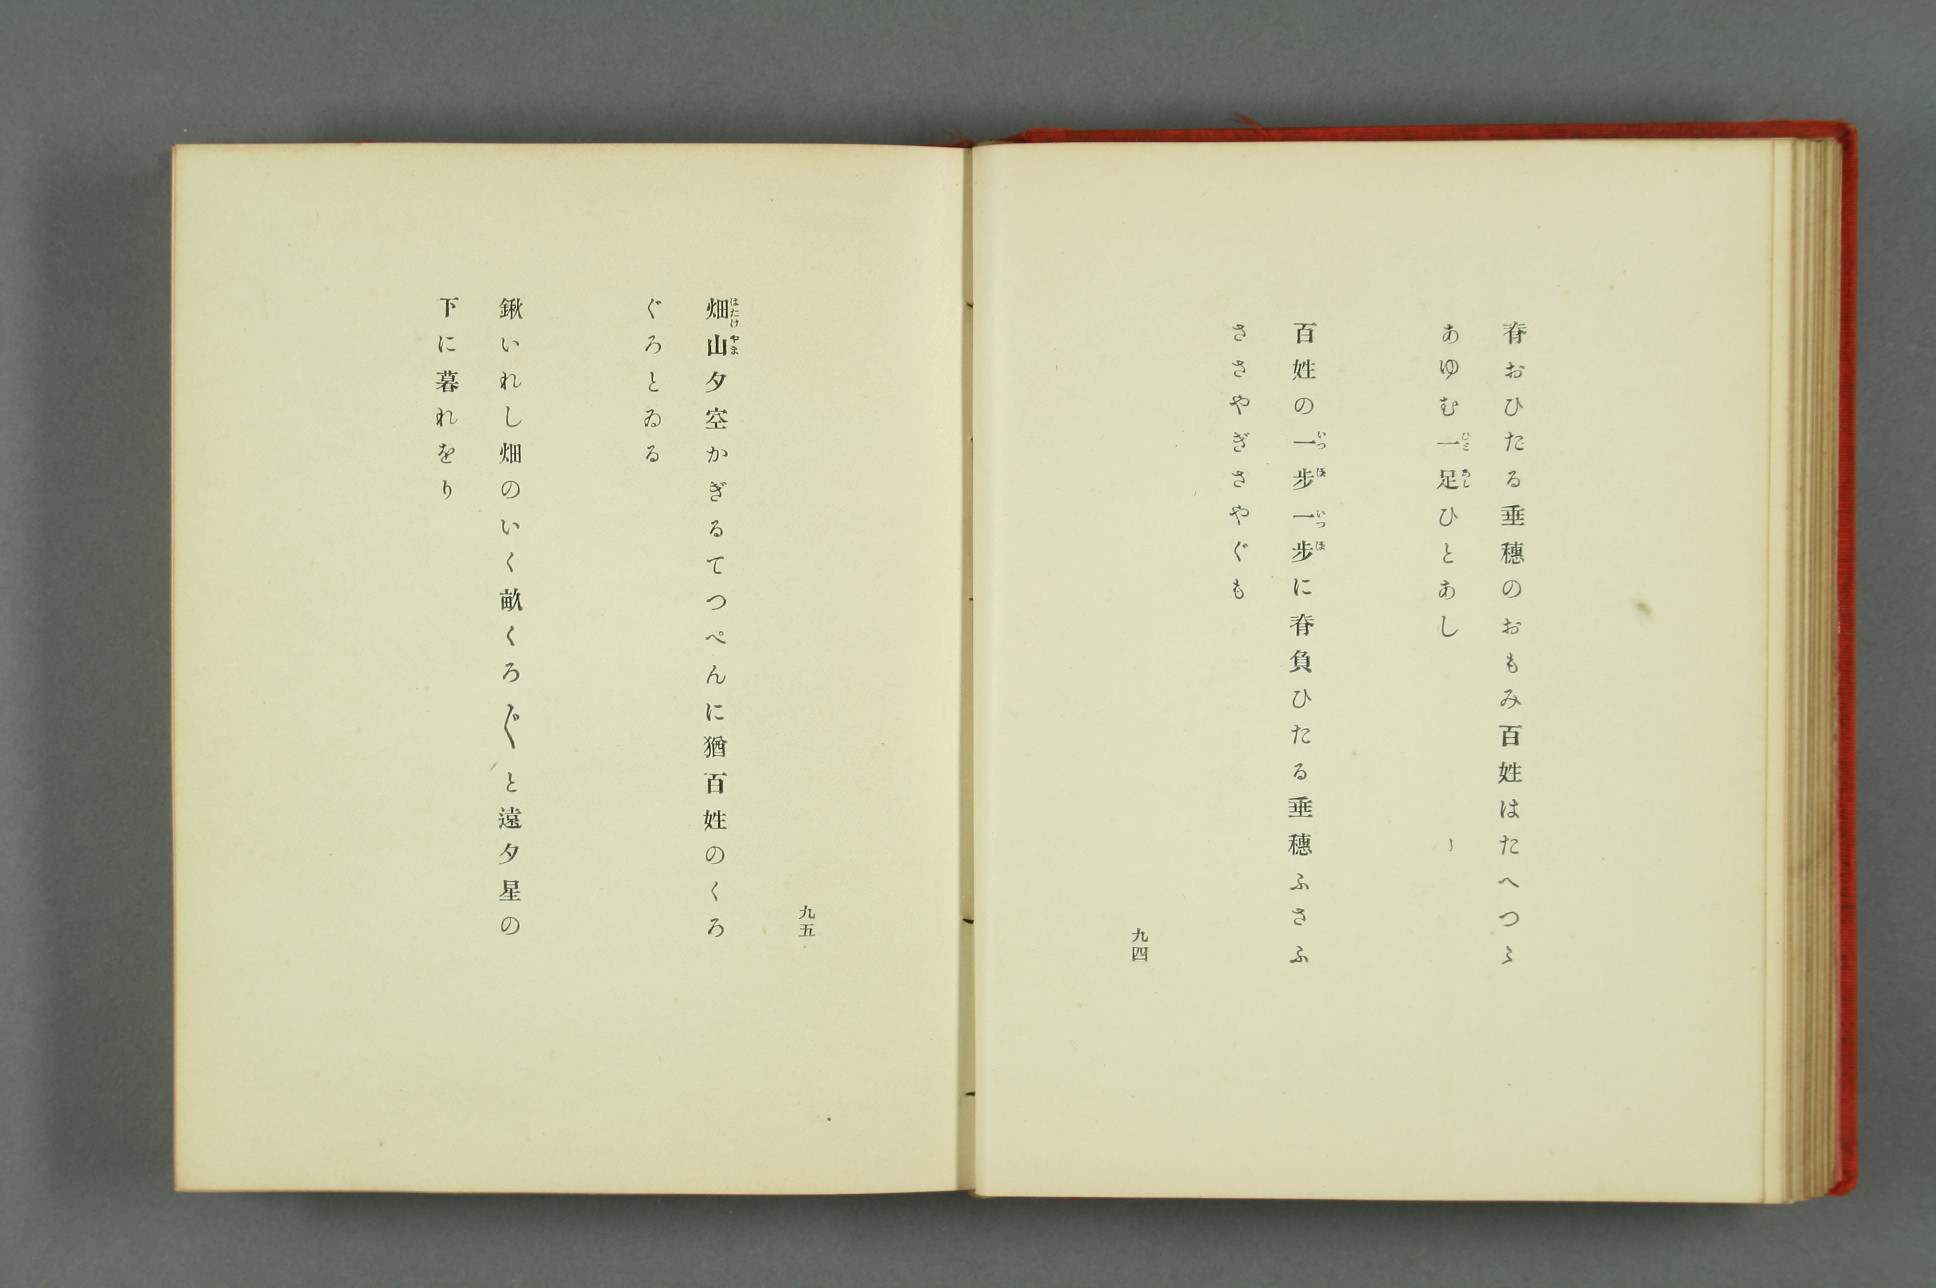 脊おひたる垂穗のおもみ百姓はたへつゝ
あゆむ一足ひとあし
百姓の一步一步に脊負ひたる垂穗ふさふ
ささやぎさやぐも
九四
畑山夕空かぎるてつぺんに猶百姓のくろ
ぐろとゐる
鍬いれし畑のいく畝くろ〴〵と遠夕星の
下に暮れをり
九五